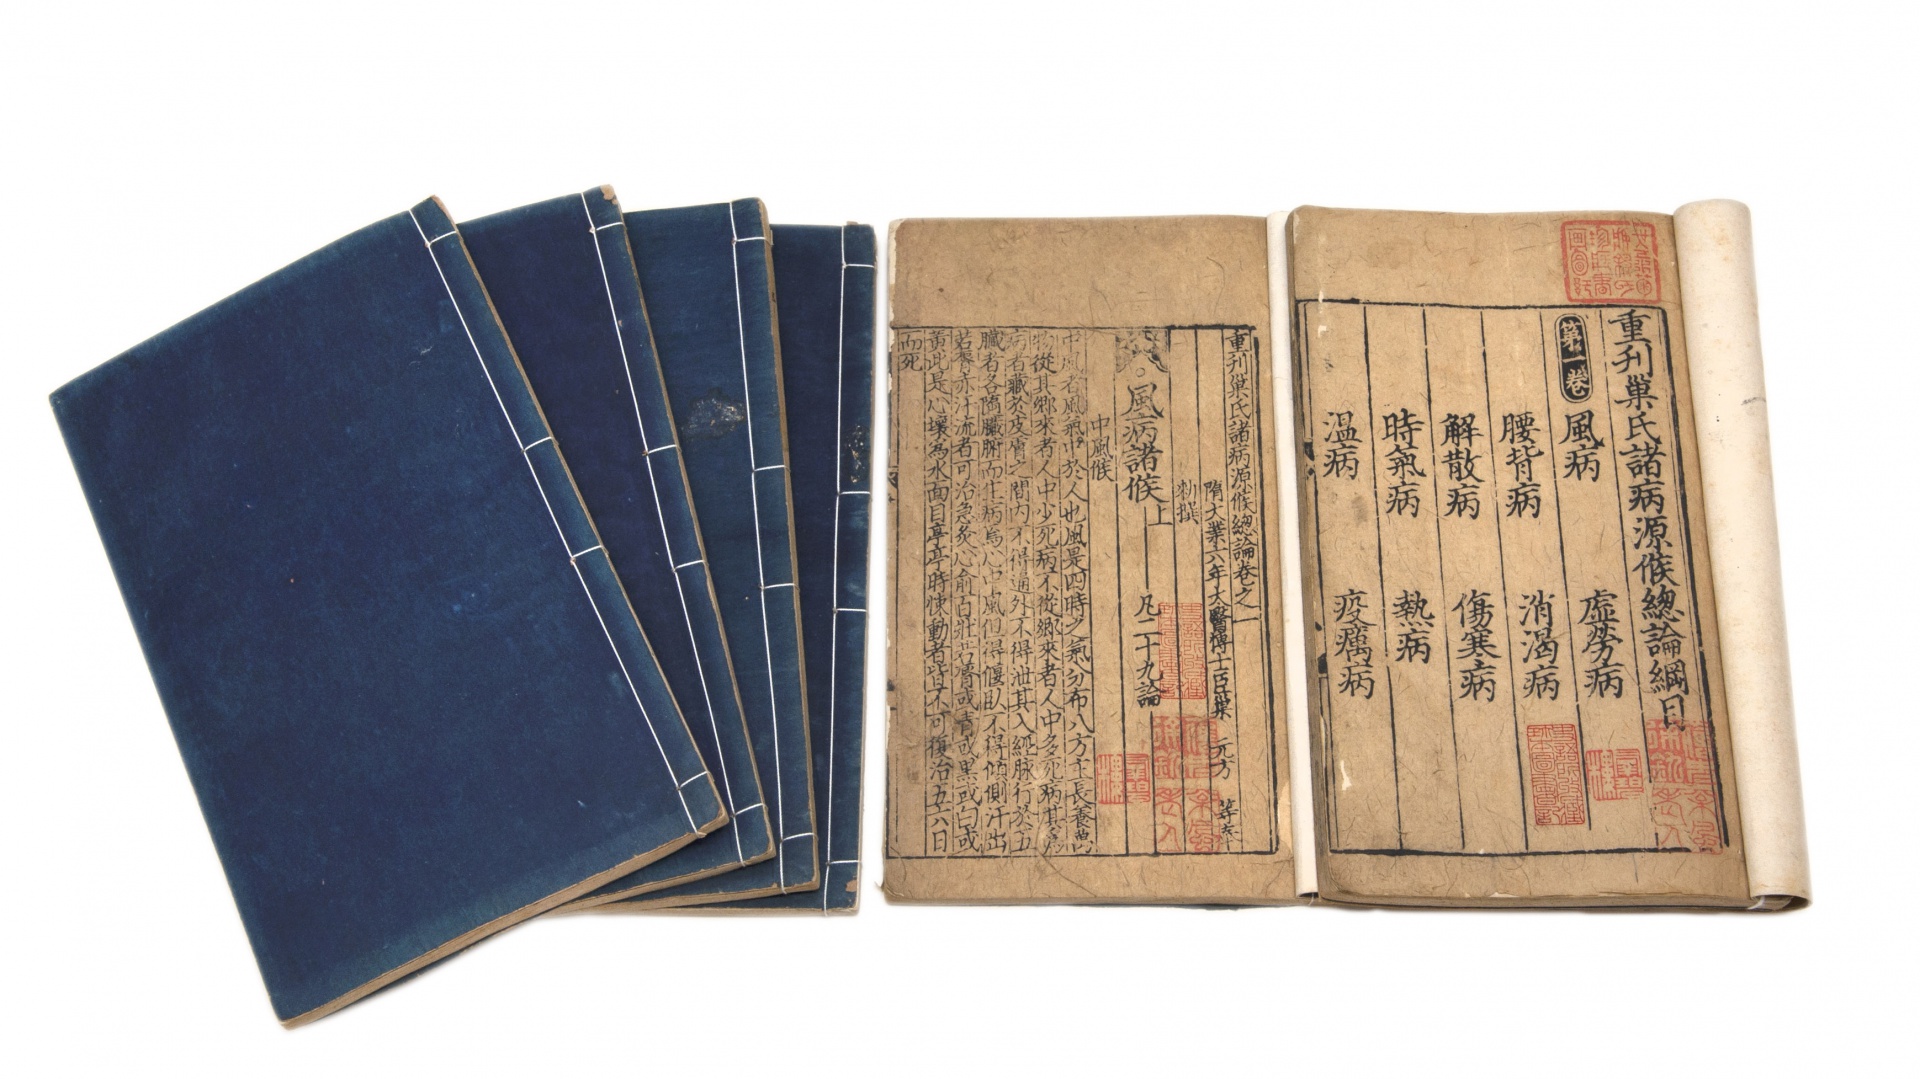 重刊巢氏諸病源候總論綱目
第一卷 風病 虛勞病
腰背病 消渴病
解散病 傷寒病
時氣病 熱病
温病 疫癘病
重刊巢氏諸病源候總論卷之一
隋大業六年太醫博士臣巢 元方 等奉
勑撰
風病諸候上 凡二十九論
中風候
中風者風氣中於人也風是四時之氣分布八方主長養萬
物從其鄉來者人中少死病不從鄉來者人中多死病其爲
病者藏於皮膚之間内不得通外不得泄其入經脉行於五
臟者各隨臟腑而生病焉心中風但得偃臥不得傾側汗出
若唇赤汗流者可治急灸心俞百壯若唇或青或黑或白或
黃此是心壞為水面目亭亭時悚動者皆不可復治五六日
而死